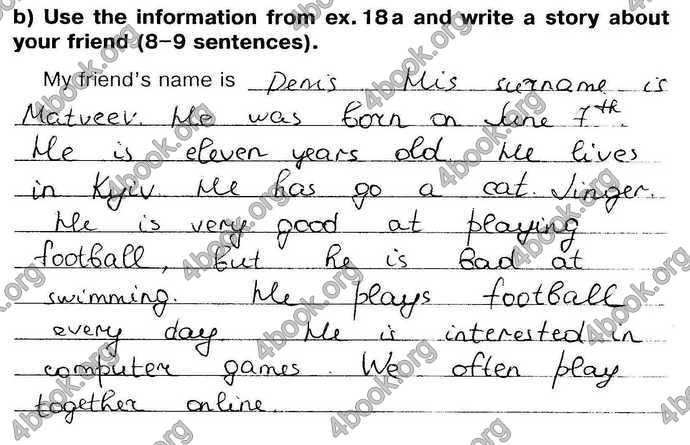 b) Use the information from ex. 18a and write a story about
your friend (8–9 sentences).
My friend's name is Denis. His surname is
Matveev. He was born on June 7th.
He is eleven years old. He lives
in Kyiv. He has go a cat. Jinger.
He is very good at playing
football, but he is bad at
swimming. He plays football
every day. He is interested in
computer games. We often play
together online.
4book.org